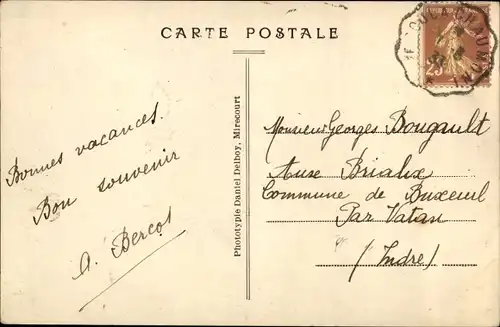 CARTE POSTALE
Bonnes vacances.
Bon souvenir
Phototypie Daniel Delboy, Mirecourt
Monsieur Georges Bougault
Aux Brialix
Commune de Buxeuil
Par Vatan
(Indre)
25